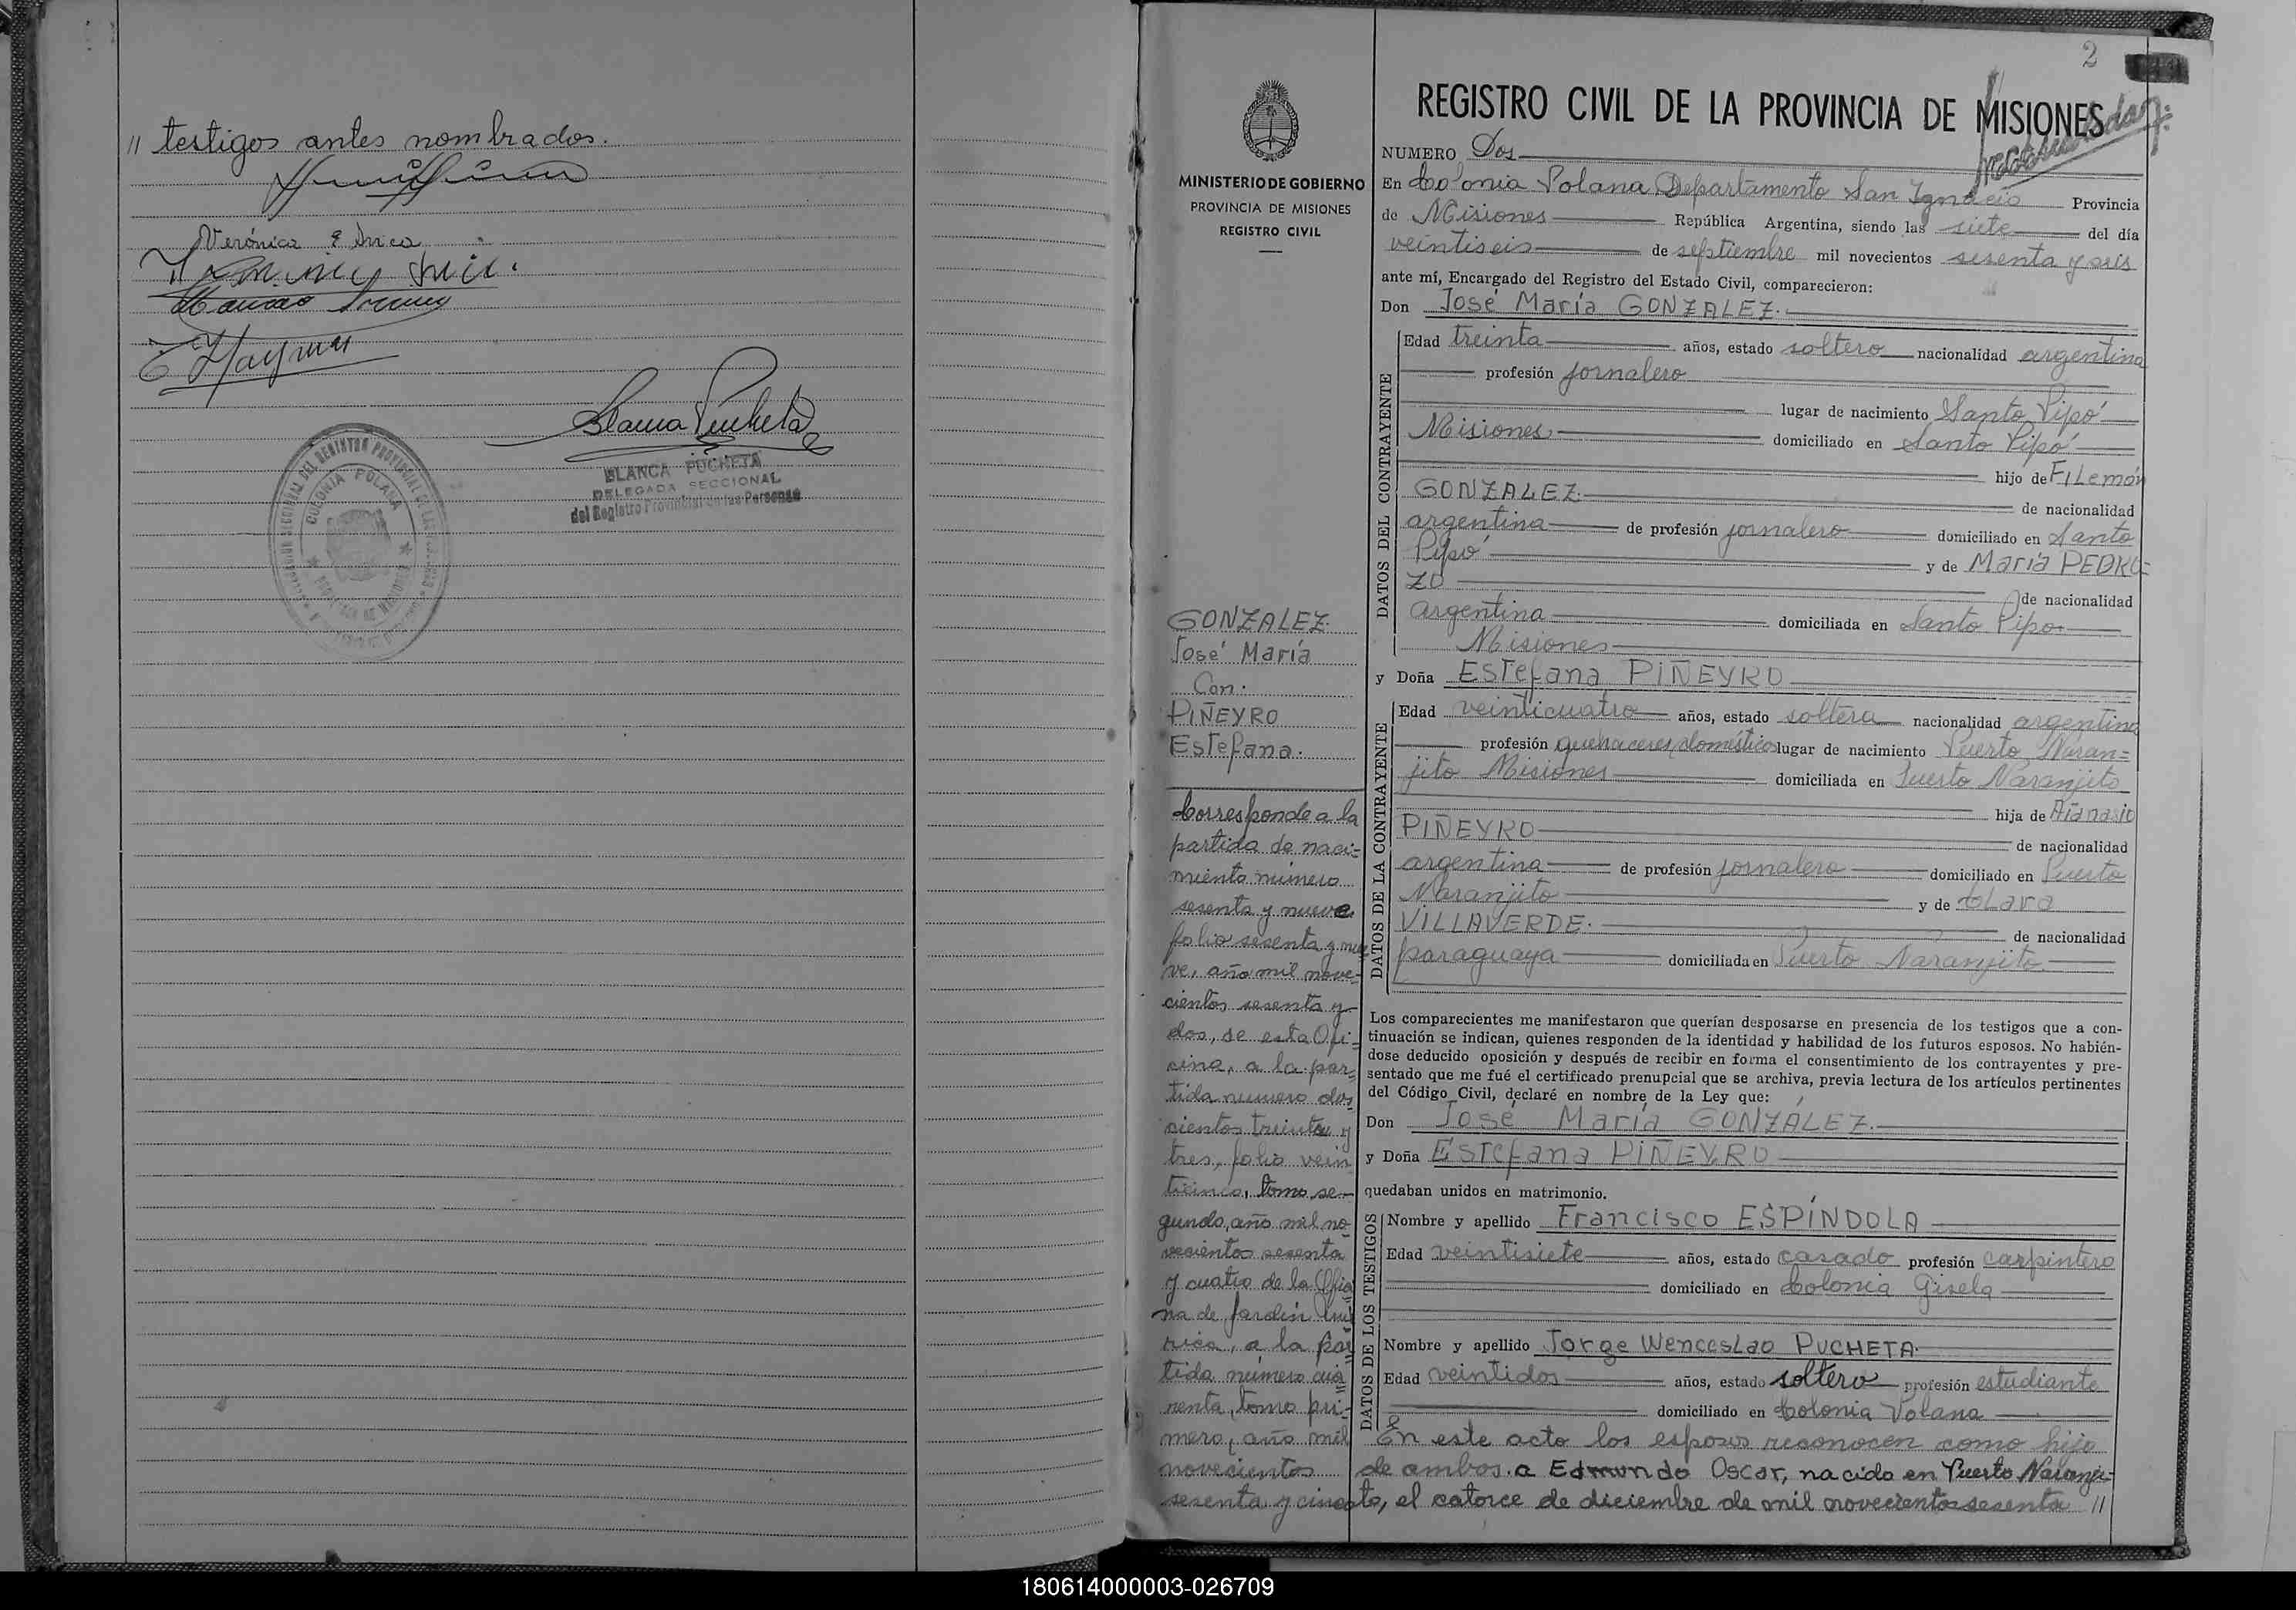 // testigos antes nombrados.
Verónica
BLANCA PUCHETA
DELEGADA SECCIONAL
del Registro Provincial de las Personas
COLONIA POLANA
2
REGISTRO CIVIL DE LA PROVINCIA DE MISIONES
MINISTERIO DE GOBIERNO
PROVINCIA DE MISIONES
REGISTRO CIVIL
NUMERO Dos
En Colonia Polana Departamento San Ignacio Provincia
de Misiones República Argentina, siendo las siete del día
veintiseis de septiembre mil novecientos sesenta y seis
ante mí, Encargado del Registro del Estado Civil, comparecieron:
Don José María GONZALEZ.
DATOS DEL CONTRAYENTE
Edad treinta años, estado soltero nacionalidad argentina
profesión jornalero
lugar de nacimiento Santo Pipó
Misiones domiciliado en Santo Pipó
hijo de FILemón
GONZALEZ. de nacionalidad
argentina de profesión jornalero domiciliado en Santo
Pipó y de María PEDRO=
ZO de nacionalidad
argentina domiciliada en Santo Pipo
Misiones
y Doña ESTefana PIÑEYRO
DATOS DE LA CONTRAYENTE
Edad veinticuatro años, estado soltera nacionalidad argentina
profesión quehaceres domésticos lugar de nacimiento Puerto Naran=
jito Misiones domiciliada en Puerto Naranjito
hija de Atanasio
PIÑEYRO de nacionalidad
argentina de profesión jornalero domiciliado en Puerto
Naranjito y de CLara
VILLAVERDE. de nacionalidad
paraguaya domiciliada en Puerto Naranjito
Los comparecientes me manifestaron que querían desposarse en presencia de los testigos que a con-
tinuación se indican, quienes responden de la identidad y habilidad de los futuros esposos. No habién-
dose deducido oposición y después de recibir en forma el consentimiento de los contrayentes y pre-
sentado que me fué el certificado prenupcial que se archiva, previa lectura de los artículos pertinentes
del Código Civil, declaré en nombre de la Ley que:
Don José María GONZÁLEZ.
y Doña ESTefana PIÑEYRO
quedaban unidos en matrimonio.
DATOS DE LOS TESTIGOS
Nombre y apellido Francisco ESPÍNDOLA
Edad veintisiete años, estado casado profesión carpintero
domiciliado en Colonia Gisela
DATOS DE LOS TESTIGOS
Nombre y apellido Jorge WencesLao PUCHETA.
Edad veintidos años, estado soltero profesión estudiante
domiciliado en Colonia Polana
En este acto los esposos reconocen como hijo
de ambos. a Edmundo Oscar, nacido en Puerto Naranji=
to, el catorce de diciembre de mil novecientos sesenta //
GONZALEZ.
José María
Con.
PIÑEYRO
ESTefana.
Corresponde a la
partida de naci=
miento número
sesenta y nueve
folio sesenta y nue
ve, año mil nove-
cientos sesenta y
dos, de esta Ofi=
cina, a la par=
tida numero dos
cientos treinta y
tres, folio vein
ticinco, tomo se-
gundo, año mil no
vecientos sesenta
y cuatro de la Ofici
na de Jardín Amé
rica, a la par
tida número cua
renta, tomo pri=
mero, año mil
novecientos
sesenta y cinco
180614000003-026709